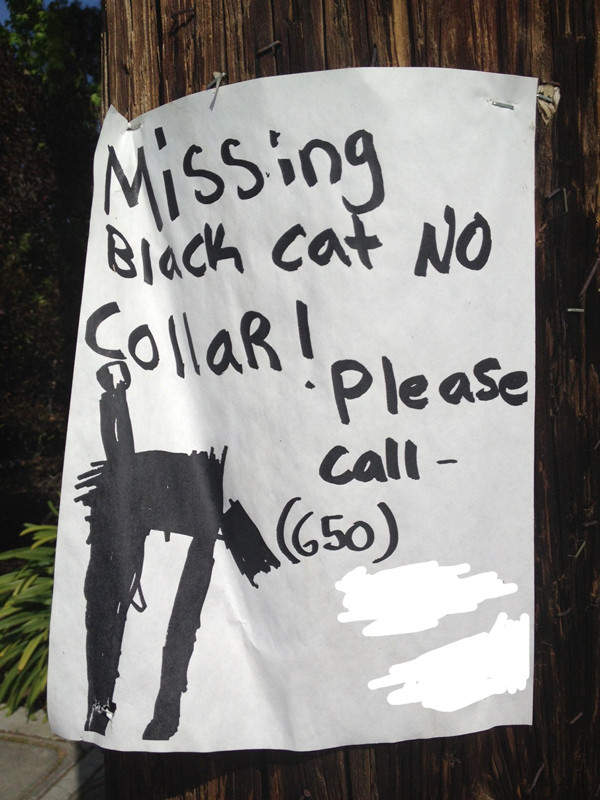 Missing
Black cat NO
CollaR!
Please
call -
(650)